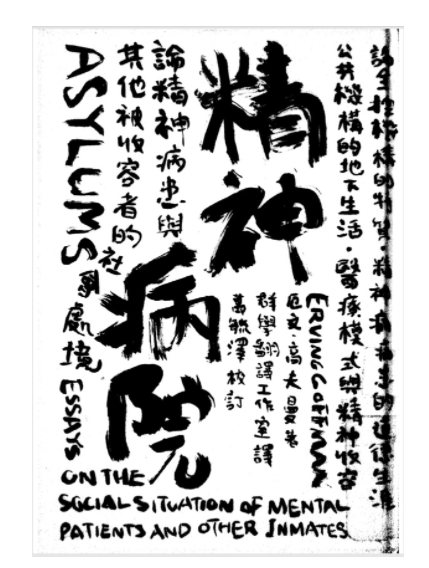 論全控機構的特質·精神病病患的道德生涯
公共機構的地下生活·醫療模式與精神收容
精神
病
院
ERVING GOFFMAN
厄文·高夫曼著
群學翻譯工作室譯
萬毓澤校訂
論精神病患與
其他被收容者的
社會處境
ASYLUMS
ESSAYS
ON THE
SOCIAL SITUATION OF MENTAL
PATIENTS AND OTHER INMATES